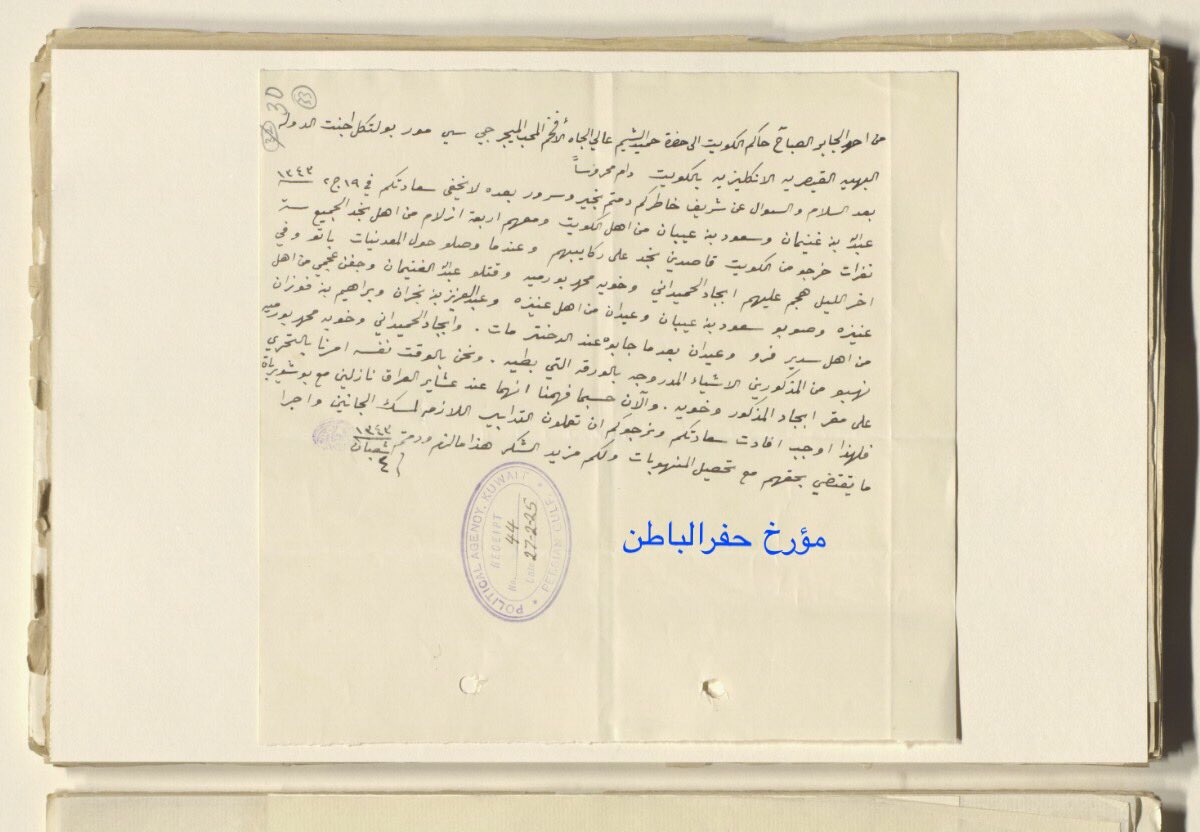 30
33
من احمد الجابر الصباح حاكم الكويت الى حضرة حميد الشيم عالي الجاه الأفخم المحب الميجر جي سي مور بولتكل اجنت الدولة
البهيه القيصريه الانكليزيه بالكويت دام محروساً
بعد السلام والسوال عن شريف خاطركم دمتم بخير وسرور بعده لا يخفى سعادتكم في ١٩ ج٢ ١٣٤٣
عبدالله بن غنيمان وسعود بن عيبان من اهل الكويت ومعهم اربعة ازلام من اهل نجد الجميع ستة
نفرات خرجو من الكويت قاصدين نجد على ركايبهم وعندما وصلو حول المعدنيات باتو وفي
اخر الليل هجم عليهم ابجاد الحميداني وخويه محمد بورميه وقتلو عبدالله الغنيمان وجفن عجمي من اهل
عنيزه وصوبو سعود بن عيبان وعيدان من اهل عنيزه وعبدالعزيز بن نجران وبراهيم بن فوزان
من اهل سدير فرو وعيدان بعدما جابوه عند الدختر مات . وابجاد الحميداني وخويه محمد بورميه
نهبو من المذكورين الاشياء المدروجه بالورقه التي بطيه . ونحن بالوقت نفسه امرنا بالتحري
على مقر ابجاد المذكور وخويه . والآن حسبما فهمنا انهما عند عشاير العراق نازلين مع بوشويرباة
فلهذا اوجب افادت سعادتكم ونرجوكم ان تعملون التدابير اللازمه لمسك الجانين واجرا
ما يقتضي بحقهم مع تحصيل المنهوبات ولكم مزيد الشكر هذا مالزم ودمتم
٤ شعبان ١٣٤٣
POLITICAL AGENCY, KUWAIT
PERSIAN GULF
RECEIPT
No. 44
Date 27-2-25
مؤرخ حفرالباطن